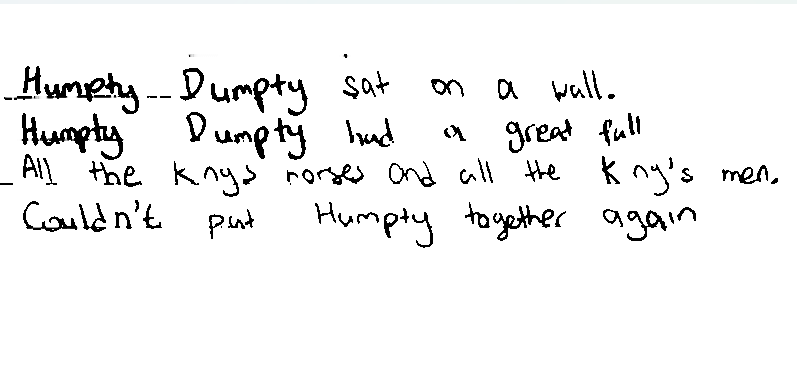 Humpty Dumpty sat on a wall.
Humpty Dumpty had a great fall
All the Kings horses and all the King's men.
Couldn't put Humpty together again